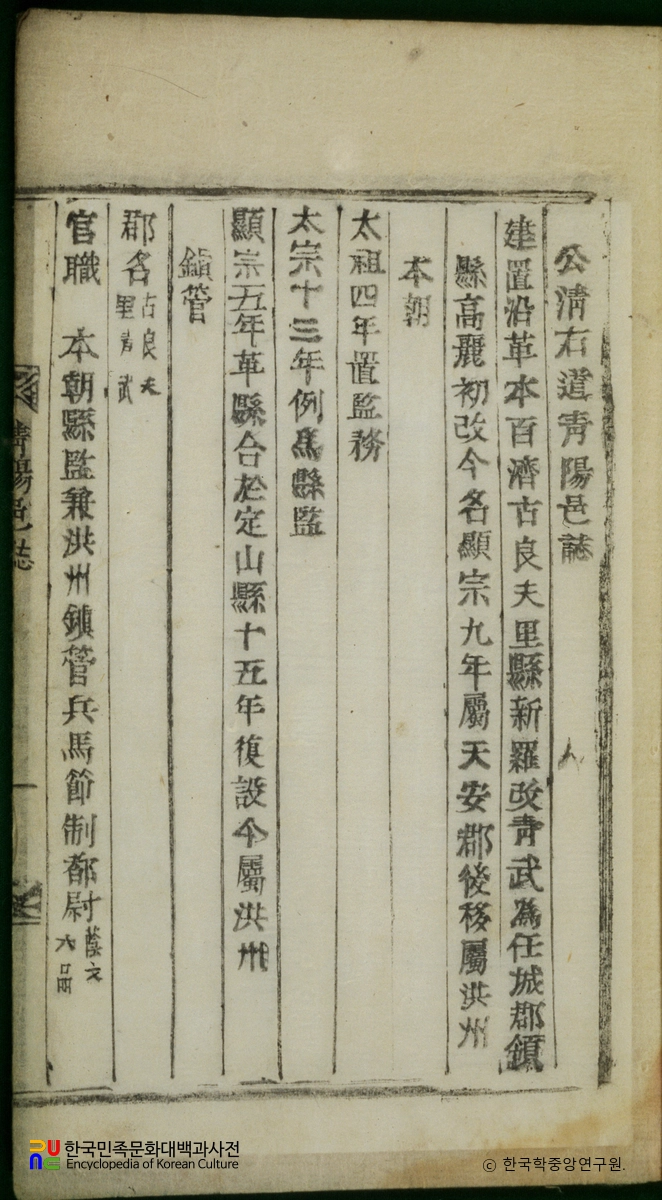 公淸右道靑陽邑誌
建置沿革本百濟古良夫里縣新羅改靑武爲任城郡領
縣高麗初改今名顯宗九年屬天安郡後移屬洪州
本朝
太祖四年置監務
太宗十三年例爲縣監
顯宗五年革縣合於定山縣十五年復設今屬洪州
鎭管
郡名 古良夫
里靑武
官職 本朝縣監兼洪州鎭管兵馬節制都尉 蔭文
六品
靑陽邑誌
한국민족문화대백과사전
Encyclopedia of Korean Culture
ⓒ 한국학중앙연구원.